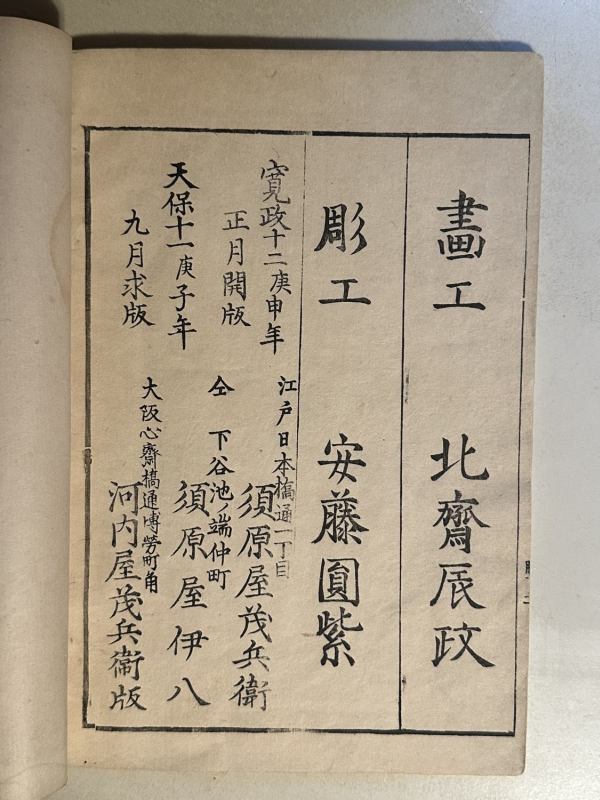 畫工 北齋辰政
彫工 安藤圓紫
寛政十二庚申年
正月開版
天保十一庚子年
九月求版
江戸日本橋通一丁目
須原屋茂兵衛
仝 下谷池ノ端仲町
須原屋伊八
大阪心齋橋通博労町角
河内屋茂兵衞版